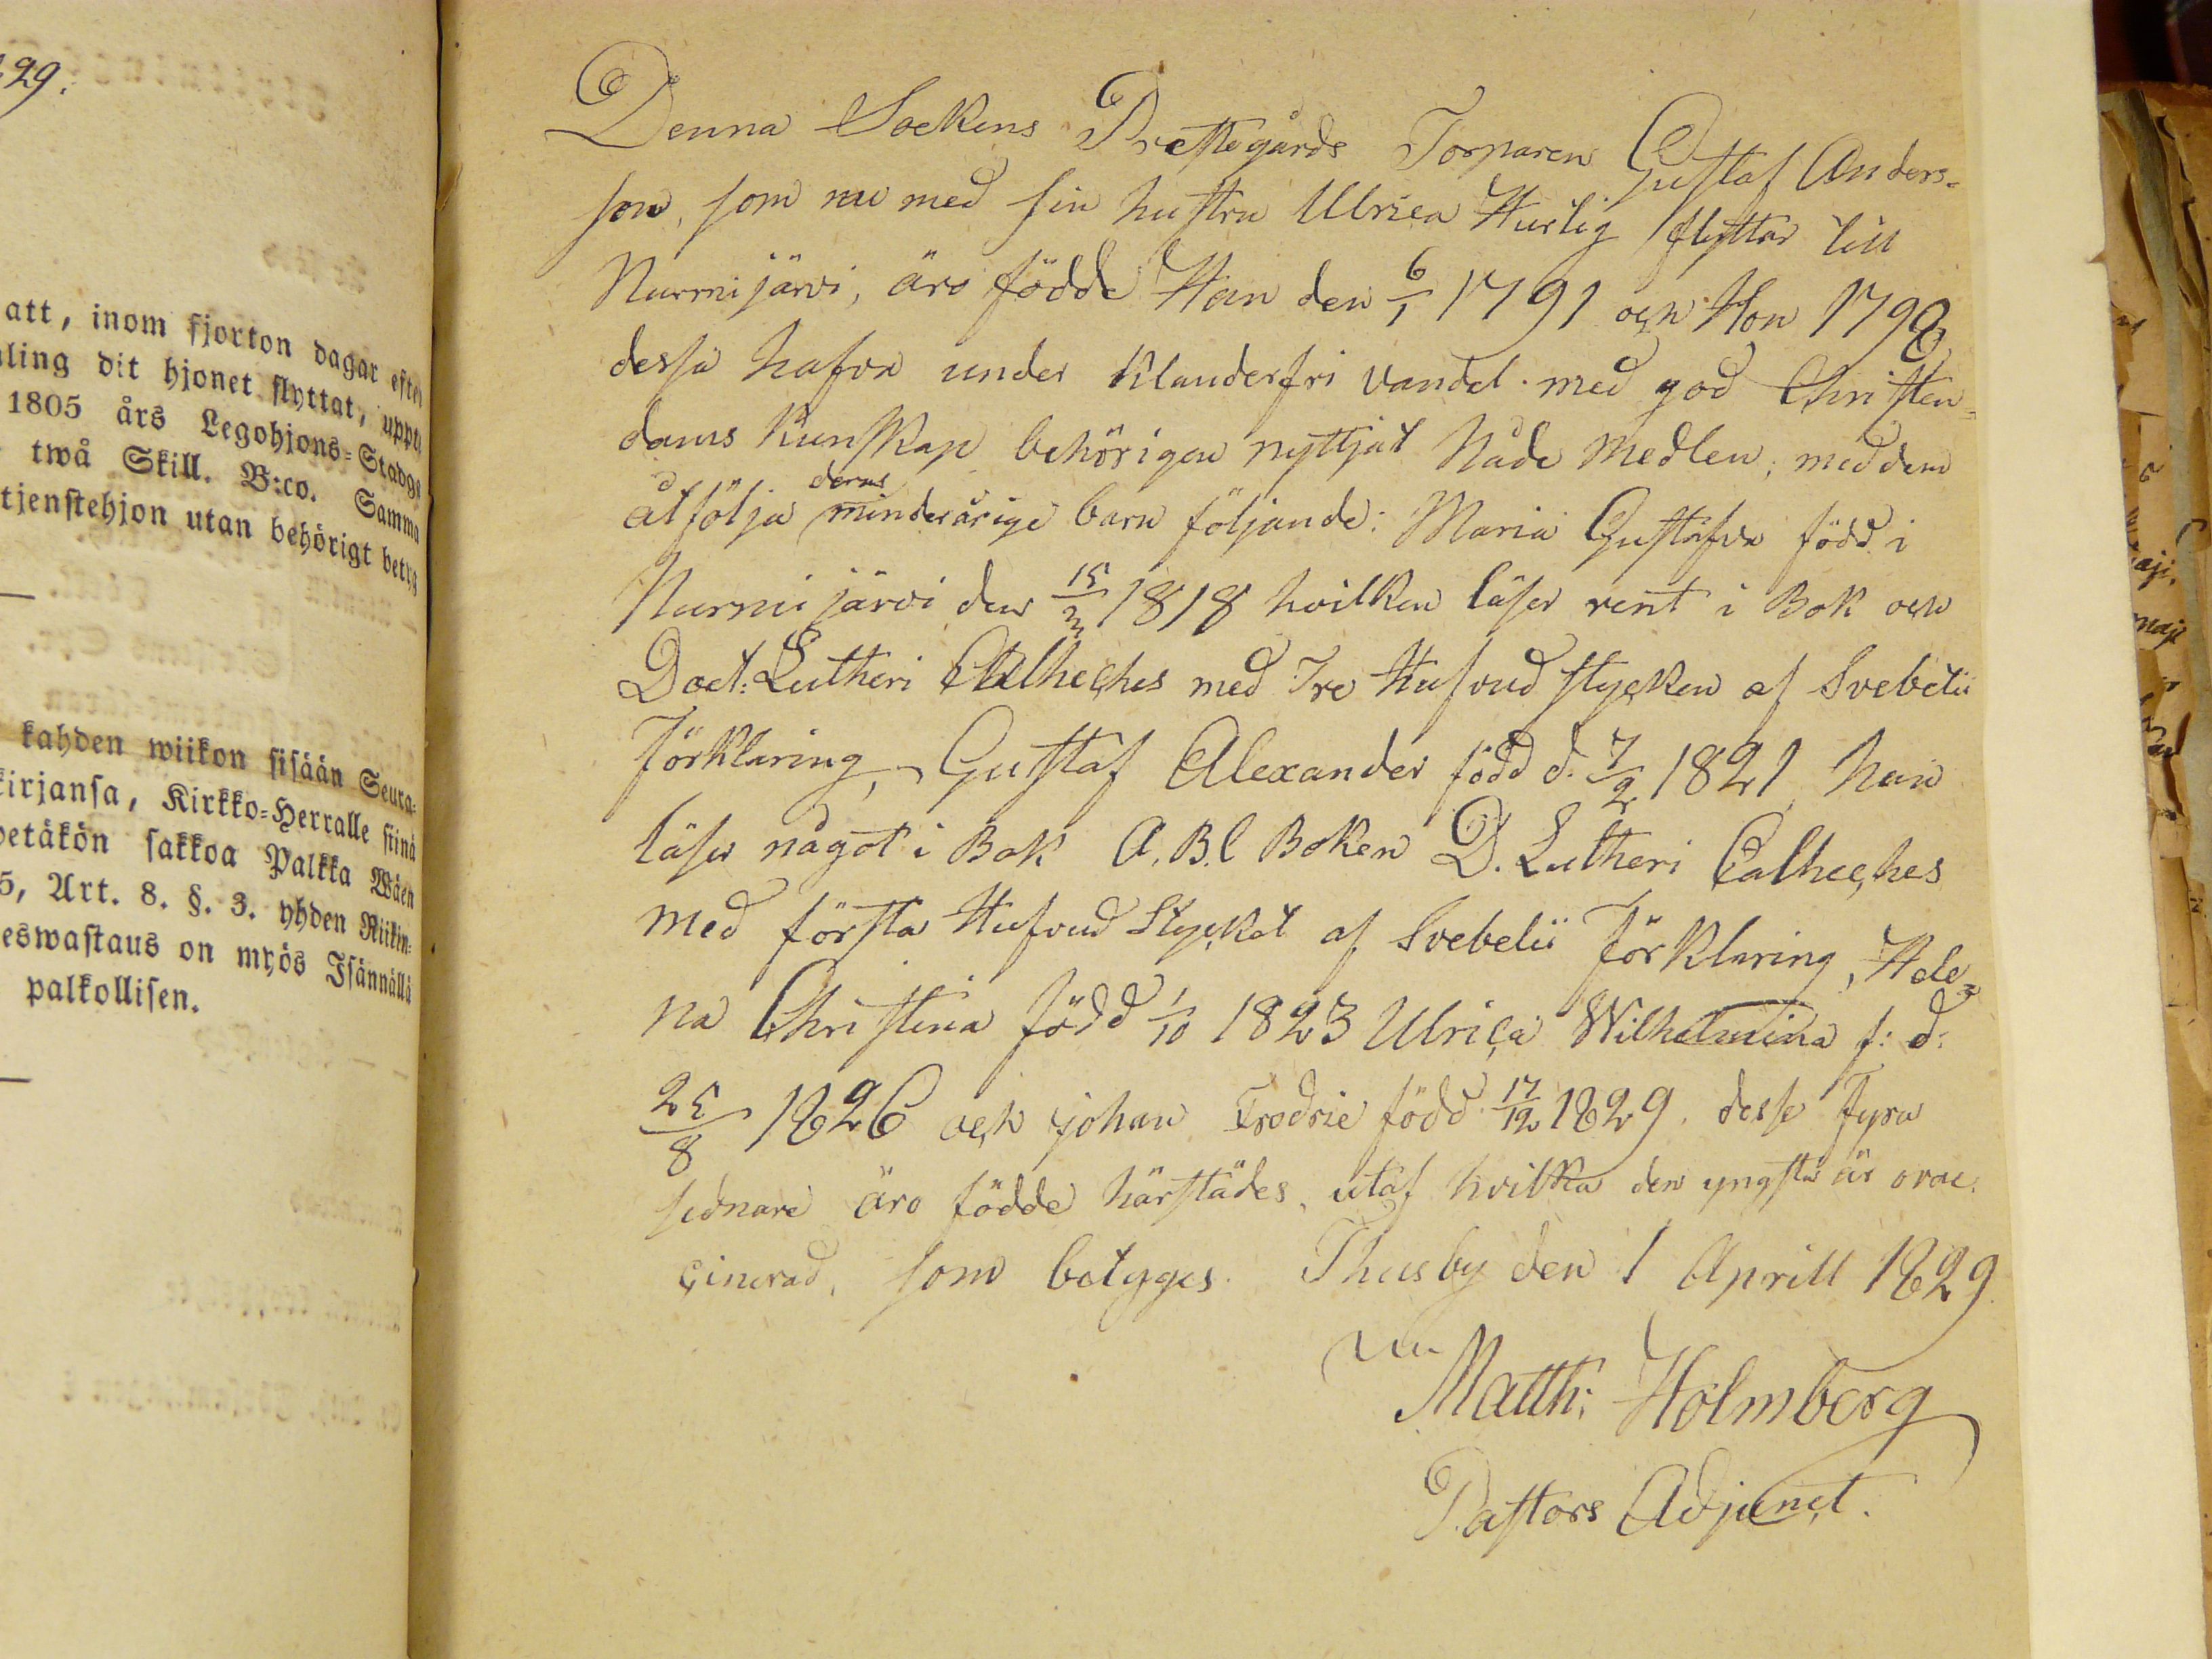 29.
att, inom fjorton dagar efter
ling dit hjonet flyttat, uppte
1805 års Legohjons-Stadga
twå Skill. B:co. Samma
tjenstehjon utan behörigt betyg
kahden wiikon sisään Seura-
kirjansa, Kirkko-Herralle siinä
wetäkön sakkoa Palkka Wäen
5, Art. 8. §. 3. yhden Riikin-
eswastaus on myös Isännällä
palkollisen.
Denna Sockens Prestegårds Torparen Gustaf Anders-
son, som nu med sin hustru Ulrica Hurtig flyttar till
Nurmijärvi, äro födde Han den 6/1 1791 och Hon 1798,
dessa hafva under klanderfri vandel med god Christen-
doms kunskap behörigen nyttjat Nåde Medlen, med dem
åtfölja deras minderårige barn följande: Maria Gustafva född i
Nurmijärvi den 15/2 1818 hvilken läser rent i Bok och
Doct: Lutheri Catheches med Tre Hufvudstycken af Svebelii
Förklaring, Gustaf Alexander född d. 7/2 1821, han
läser något i Bok A.B.C Boken D. Lutheri Catheches
med första Hufvud Stycket af Svebelii Förklaring, Hele-
na Christina född 1/10 1823 Ulrica Wilhelmina f: d:
25/8 1826 och Johan Fredric född 17/12 1829. desse Fyra
sednare äro födde härstädes, utaf hvilka den yngsta är ovac-
cinerad, som betyges. Thusby den 1 Aprill 1829.
Matth: Holmberg
Pastors Adjunct.